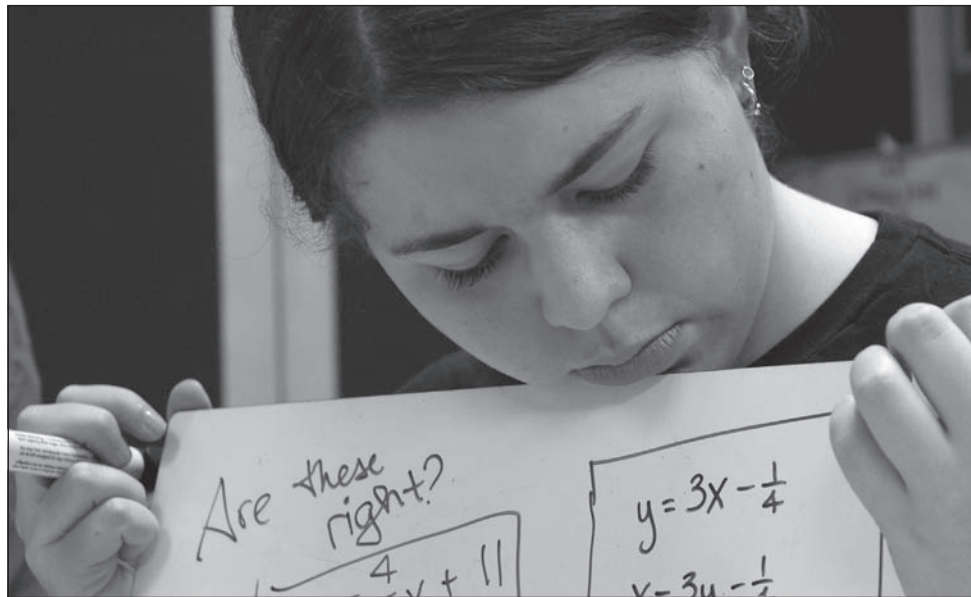 Are these
right?
4
x + 11
y = 3x - 1/4
x = 3y - 1/4